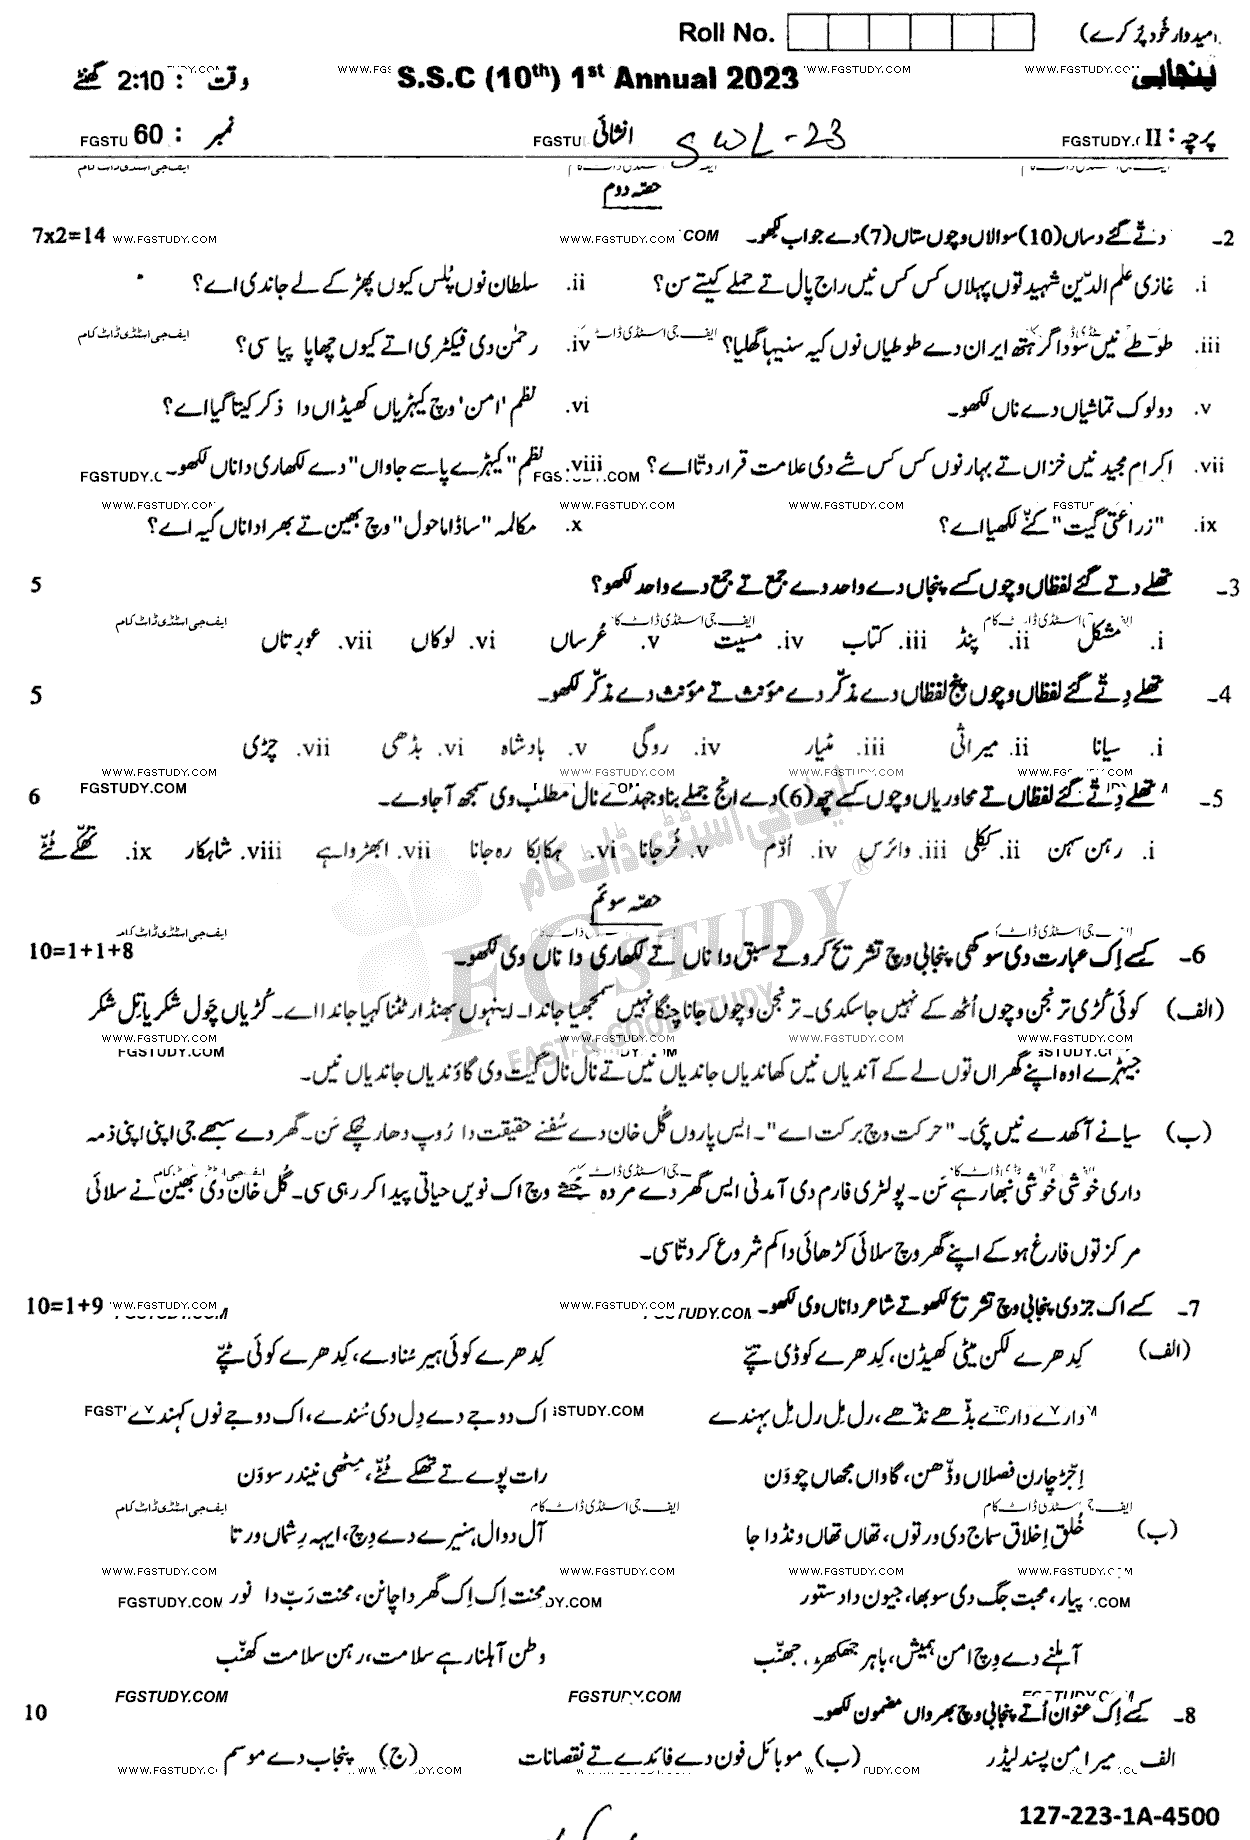 Roll No. (امیدوار خُود پُر کرے)
پنجابی S.S.C (10th) 1st Annual 2023 وقت : 2:10 گھنٹے
پرچہ : II انشائی SWL-23 نمبر : 60
حصّہ دوم
2- دتے گئے دساں (10) سوالاں وچوں ستاں (7) دے جواب لکھو۔ 7x2=14
i. غازی علم الدّین شہید توں پہلاں کس کس نیں راج پال تے حملے کیتے سن؟ ii. سلطان نوں پُلس کیوں پھڑ کے لے جاندی اے؟
iii. طوطے نیں سوداگر ہتھ ایران دے طوطیاں نوں کیہ سنیہا گھلیا؟ iv. رحمٰن دی فیکٹری اتے کیوں چھاپا پیا سی؟
v. دو لوک تماشیاں دے ناں لکھو۔ vi. نظم 'امن' وچ کیہڑیاں کھیڈاں دا ذکر کیتا گیا اے؟
vii. اکرام مجید نیں خزاں تے بہار نوں کس کس شے دی علامت قرار دتّا اے؟ viii. نظم "کیہڑے پاسے جاواں" دے لکھاری دا ناں لکھو۔
ix. "زراعتی گیت" کنّے لکھیا اے؟ x. مکالمہ "ساڈا ماحول" وچ بھین تے بھرا دا ناں کیہ اے؟
3- تھلے دتے گئے لفظاں وچوں کسے پنجاں دے واحد دے جمع تے جمع دے واحد لکھو؟ 5
i. مشکل ii. پنڈ iii. کتاب iv. مسیت v. عُرساں vi. لوکاں vii. عورتاں
4- تھلے دِتّے گئے لفظاں وچوں پنج لفظاں دے مذکر دے مؤنث تے مؤنث دے مذکّر لکھو۔ 5
i. سیانا ii. میراثی iii. مُٹیار iv. روگی v. بادشاہ vi. بڈھی vii. چڑی
5- تھلے دِتّے گئے لفظاں تے محاوریاں وچوں کسے چھ (6) دے انج جملے بناؤ جہدے نال مطلب وی سمجھ آ جاوے۔ 6
i. رہن سہن ii. ککلی iii. وائرس iv. اُدّم v. ٹُر جانا vi. ہکا بکا رہ جانا vii. ابھڑواہے viii. شاہکار ix. تھکّے ٹُٹے
حصّہ سوئم
6- کسے اِک عبارت دی سوکھی پنجابی وچ تشریح کرو تے سبق دا ناں تے لکھاری دا ناں وی لکھو۔ 10=1+1+8
(الف) کوئی کُڑی ترنجن وچوں اُٹھ کے نہیں جا سکدی۔ ترنجن وچوں جانا چنگا نہیں سمجھیا جاندا۔ اینہوں بھنڈار ٹٹنا کہیا جاندا اے۔ کُڑیاں چَول شکر یا تِل شکر
جیہڑے اوہ اپنے گھراں توں لے کے آندیاں نیں کھاندیاں جاندیاں نیں تے نال نال گیت وی گاؤندیاں جاندیاں نیں۔
(ب) سیانے آکھدے نیں پئی۔ "حرکت وچ برکت اے"۔ ایس پاروں گُل خان دے سُفنے حقیقت دا رُوپ دھار چُکے سَن۔ گھر دے سبھے جی اپنی اپنی ذمہ
داری خوشی خوشی نبھا رہے سَن۔ پولٹری فارم دی آمدنی ایس گھر دے مُردہ جُثّے وچ اک نویں حیاتی پیدا کر رہی سی۔ گُل خان دی بھین نے سلائی
مرکز توں فارغ ہو کے اپنے گھر وچ سلائی کڑھائی دا کم شروع کر دتّا سی۔
7- کسے اک جز دی پنجابی وچ تشریح لکھو تے شاعر دا ناں وی لکھو۔ 10=1+9
(الف) کِدھرے لکن مِٹی کھیڈن، کِدھرے کوڈی ٹپّے کِدھرے کوئی ہیر سُناوے، کِدھرے کوئی ٹپّے
دارے دارے بڈّھے نڈّھے، رل مِل رل مِل بہندے اک دوجے دے دِل دی سُندے، اک دوجے نوں کہندے
اِجّڑ چارن فصلاں وڈّھن، گاواں مجھاں چوَون رات پوے تے تھکے ٹُٹے، مِٹھی نیندر سوَون
(ب) خُلق اِخلاق سماج دی ورتوں، تھاں تھاں ونڈدا جا آل دوال ہنیرے دے وِچ، ایہہ رِشماں ورتا
پیار، محبت جگ دی سوبھا، جیون دا دستور محنت اِک اِک گھر دا چانن، محنت رَبّ دا نور
آہلنے دے وِچ امن ہمیش، باہر جھکھڑ، جھنّب وطن آہلنا رہے سلامت، رہن سلامت کھنّب
8- کسے اِک عنوان اُتے پنجابی وچ بھرواں مضمون لکھو۔ 10
الف میرا من پسند لیڈر (ب) موبائل فون دے فائدے تے نقصانات (ج) پنجاب دے موسم
127-223-1A-4500